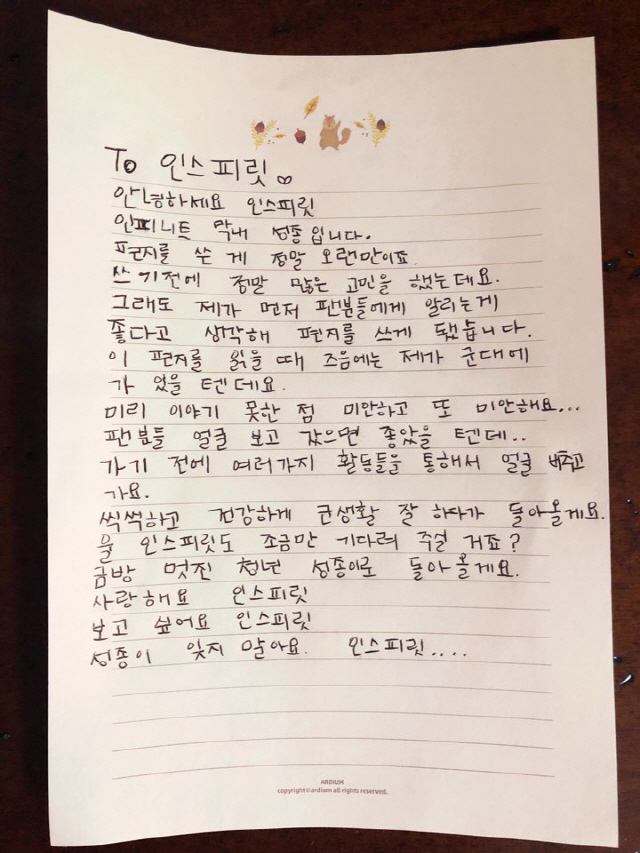 To 인스피릿
안녕하세요 인스피릿
인피니트 막내 성종입니다.
편지를 쓴 게 정말 오랜만이죠
쓰기전에 정말 많은 고민을 했는데요.
그래도 제가 먼저 팬분들에게 알리는게
좋다고 생각해 편지를 쓰게 됐습니다.
이 편지를 읽을 때 즈음에는 제가 군대에
가 있을 텐데요.
미리 이야기 못한 점 미안하고 또 미안해요...
팬분들 얼굴 보고 갔으면 좋았을 텐데..
가기 전에 여러가지 활동들을 통해서 얼굴 비추고
가요.
씩씩하고 건강하게 군생활 잘 하다가 돌아올게요.
울 인스피릿도 조금만 기다려 주실 거죠?
금방 멋진 청년 성종이로 돌아올게요.
사랑해요 인스피릿
보고 싶어요 인스피릿
성종이 잊지 말아요. 인스피릿....
ARDIUM
copyright©ardium all rights reserved.